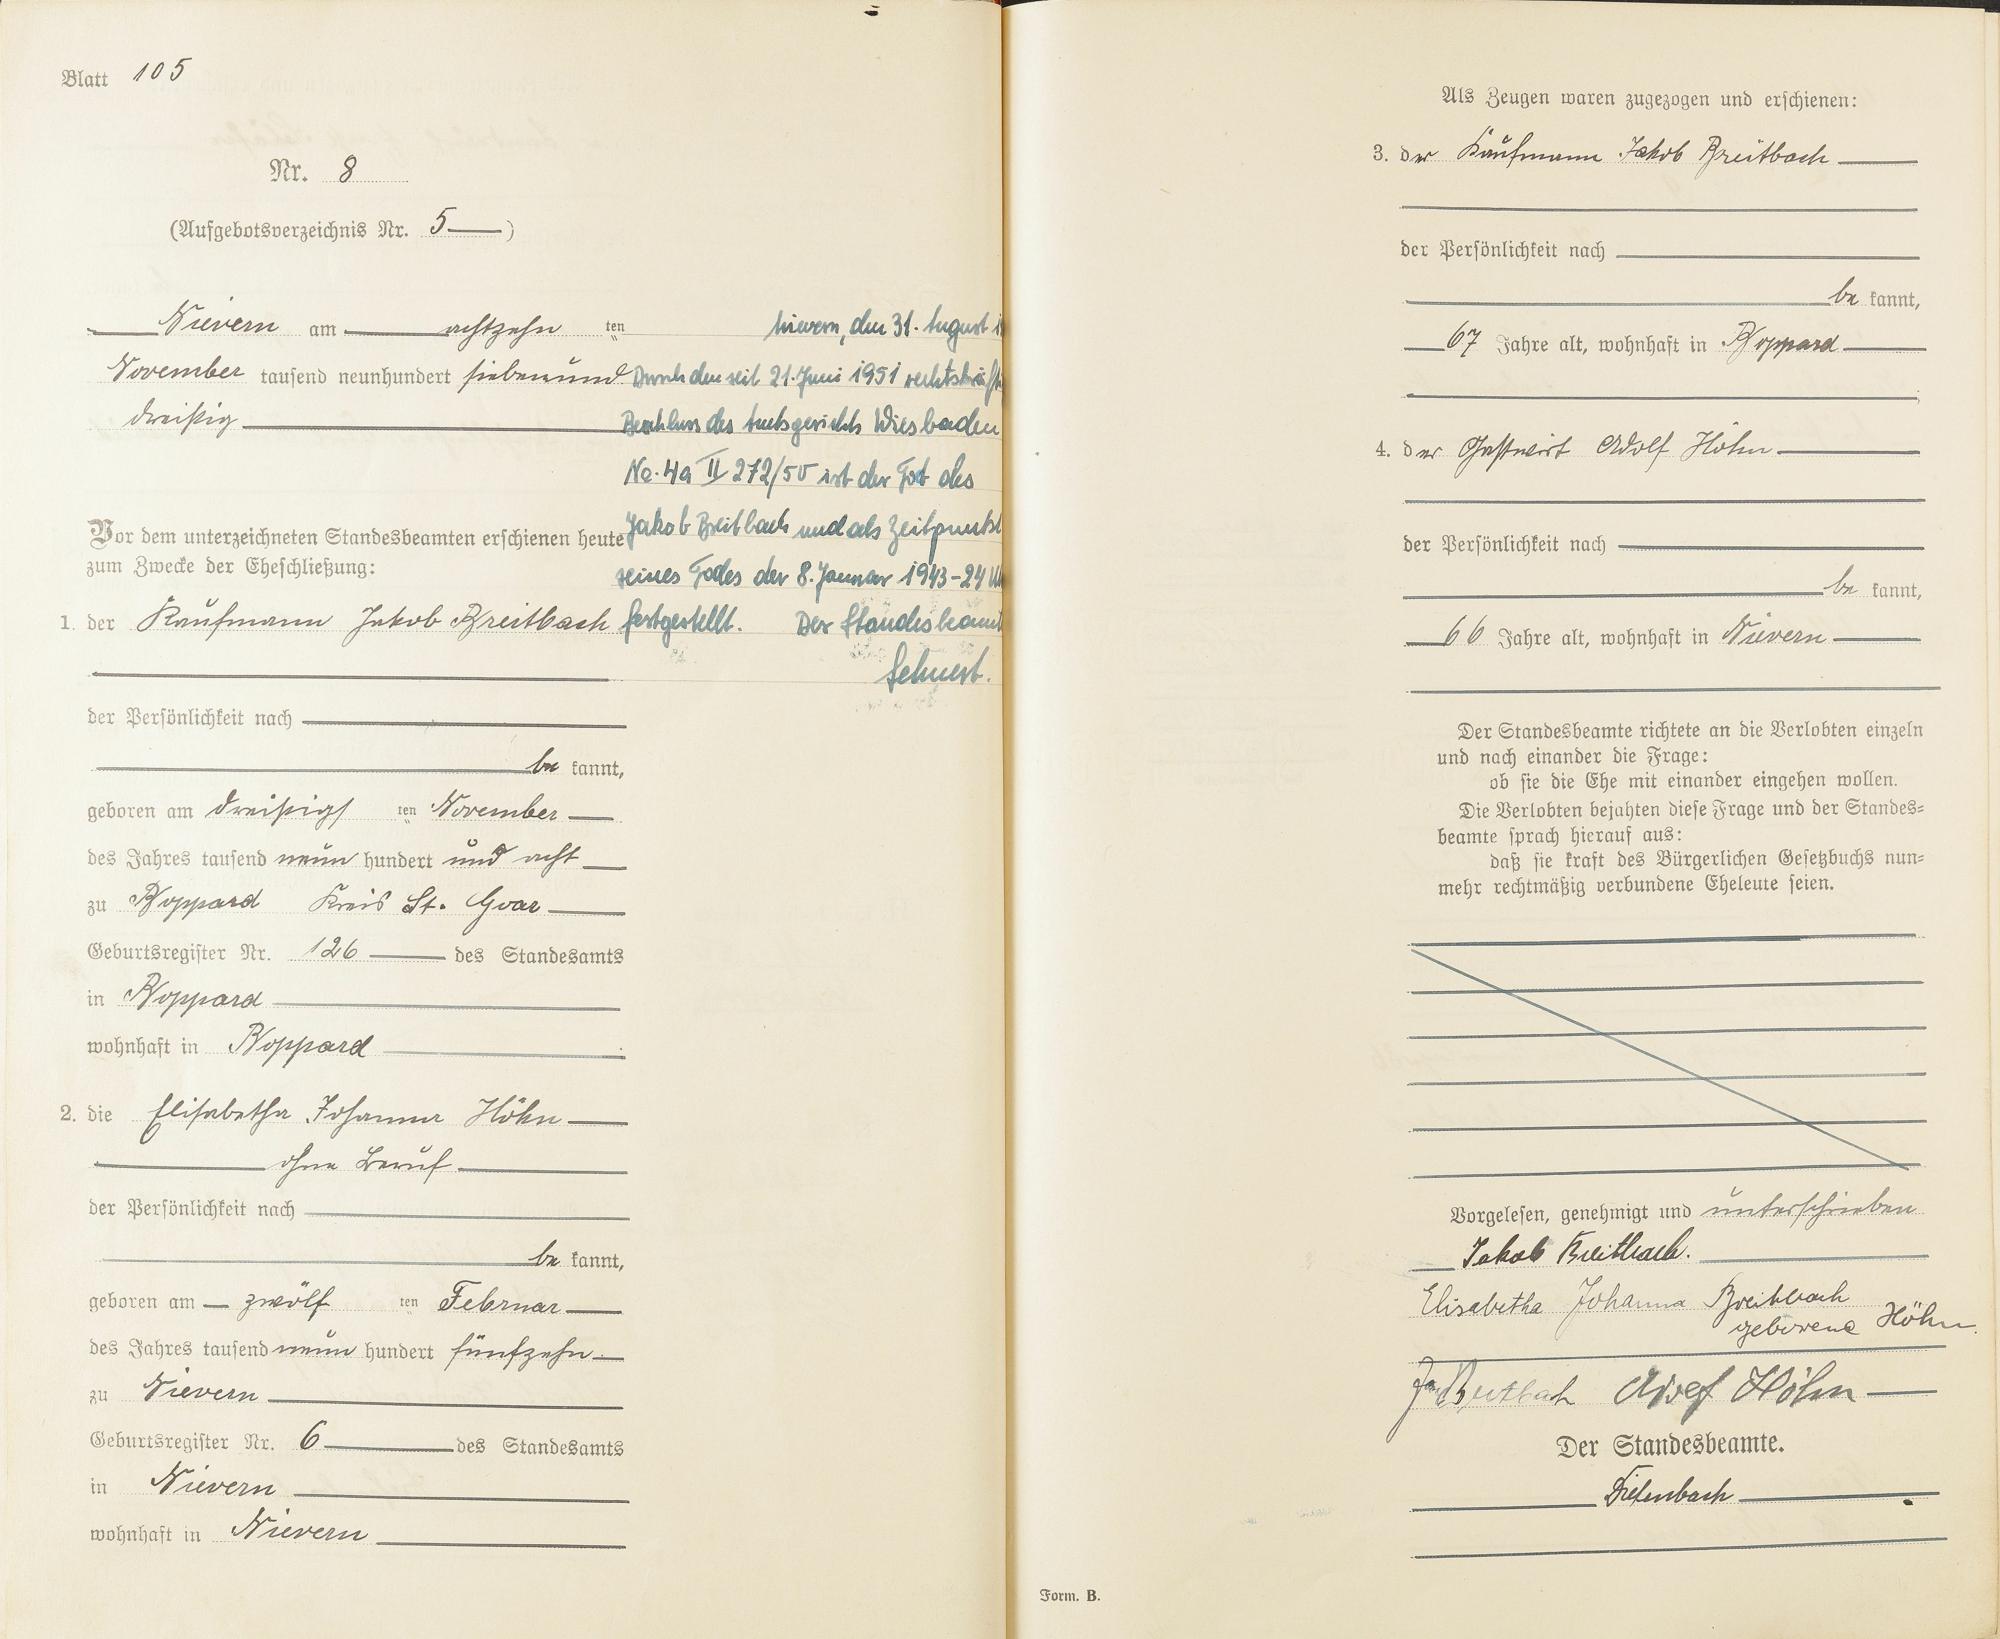 Blatt 105
Nr. 8
(Aufgebotsverzeichnis Nr. 5)
Nievern am achtzehn ten
November tausend neunhundert siebenund
dreißig
Vor dem unterzeichneten Standesbeamten erschienen heute
zum Zwecke der Eheschließung:
1. der Kaufmann Jakob Breitbach
der Persönlichkeit nach
be kannt,
geboren am dreißigs ten November
des Jahres tausend neun hundert und acht
zu Boppard Kreis St. Goar
Geburtsregister Nr. 126 des Standesamts
in Boppard
wohnhaft in Boppard
2. die Elisabetha Johanna Höhn
ohne Beruf
der Persönlichkeit nach
be kannt,
geboren am zwölf ten Februar
des Jahres tausend neun hundert fünfzehn
zu Nievern
Geburtsregister Nr. 6 des Standesamts
in Nievern
wohnhaft in Nievern
Nievern, den 31. August
Durch den seit 21. Juni 1951
Beschluss des Amtsgerichts Wiesbaden
No. 4a II 272/50 ist der Tod des
Jakob Breitbach und als Zeitpunkt
seines Todes der 8. Januar 1943 - 24
festgestellt. Der
Als Zeugen waren zugezogen und erschienen:
3. der Kaufmann Jakob Breitbach
der Persönlichkeit nach
be kannt,
67 Jahre alt, wohnhaft in Boppard
4. der Gastwirt Adolf Höhn
der Persönlichkeit nach
be kannt,
66 Jahre alt, wohnhaft in Nievern
Der Standesbeamte richtete an die Verlobten einzeln
und nach einander die Frage:
ob sie die Ehe mit einander eingehen wollen.
Die Verlobten bejahten diese Frage und der Standes-
beamte sprach hierauf aus:
daß sie kraft des Bürgerlichen Gesetzbuchs nun-
mehr rechtmäßig verbundene Eheleute seien.
Vorgelesen, genehmigt und unterschrieben
Jakob Breitbach.
Elisabetha Johanna Breitbach
geborene Höhn.
Breitbach Adolf Höhn
Der Standesbeamte.
Form. B.